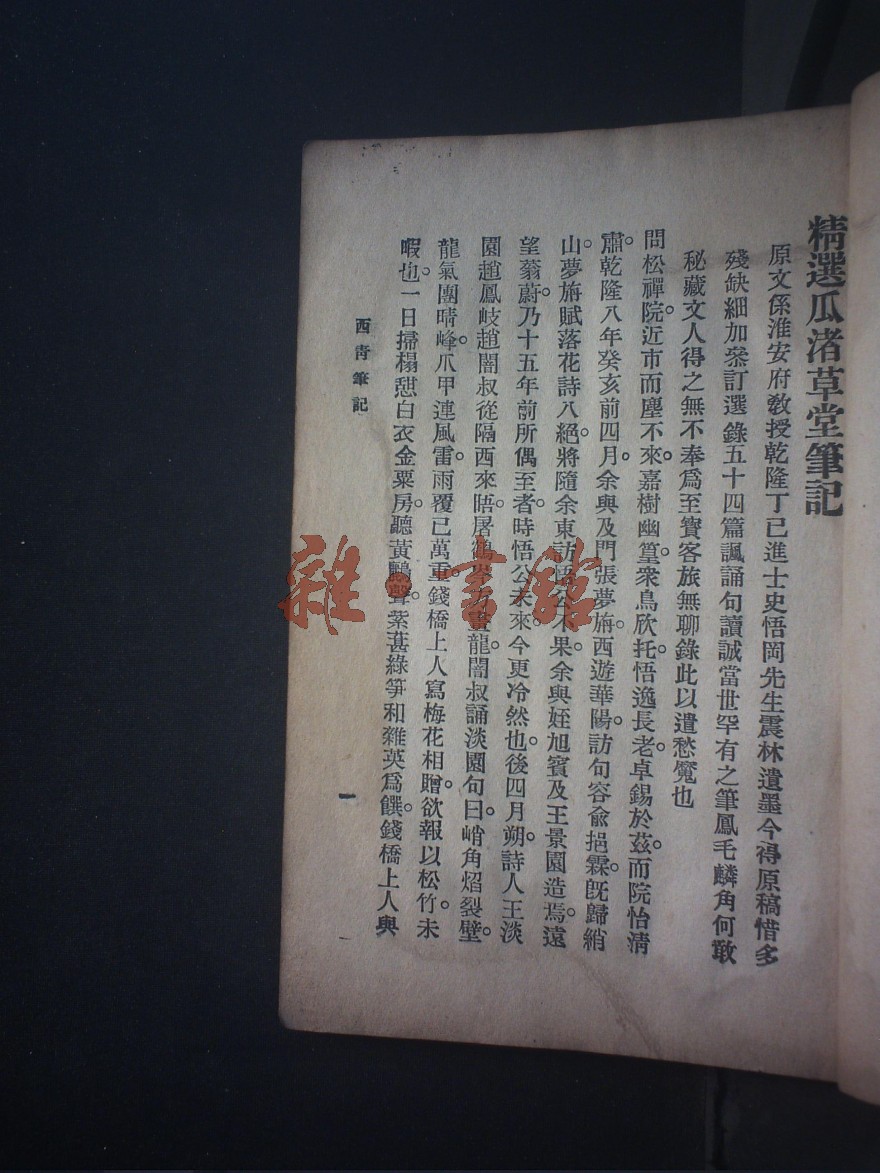 精選瓜渚草堂筆記
原文係淮安府敎授乾隆丁已進士史悟岡先生震林遺墨今得原稿惜多
殘缺細加叅訂選錄五十四篇諷誦句讀誠當世罕有之筆鳳毛麟角何敢
秘藏文人得之無不奉爲至寶客旅無聊錄此以遣愁魔也
問松禪院。近市而塵不來。嘉樹幽篁。衆鳥欣托。悟逸長老。卓錫於茲。而院怡淸
肅。乾隆八年癸亥前四月。余與及門張夢旃。西遊華陽。訪句容兪挹霖。旣歸綃
山。夢旃賦落花詩八絕。將隨余東訪悟公。不果。余與姪旭賓及王景園造焉。遠
望蓊蔚。乃十五年前所偶至者。時悟公未來。今更冷然也。後四月朔。詩人王淡
園趙鳳岐趙闇叔從隔西來晤。屠鶴岑方畫龍。闇叔誦淡園句曰。峭角熖裂壁。
龍氣團晴峰。爪甲連風雷。雨覆已萬重。錢橋上人寫梅花相贈。欲報以松竹。未
暇也。一日掃榻憇白衣金粟房。聽黃鸝聲。紫葚綠笋和雜英爲饌。錢橋上人與
西靑筆記
一
雜·書館